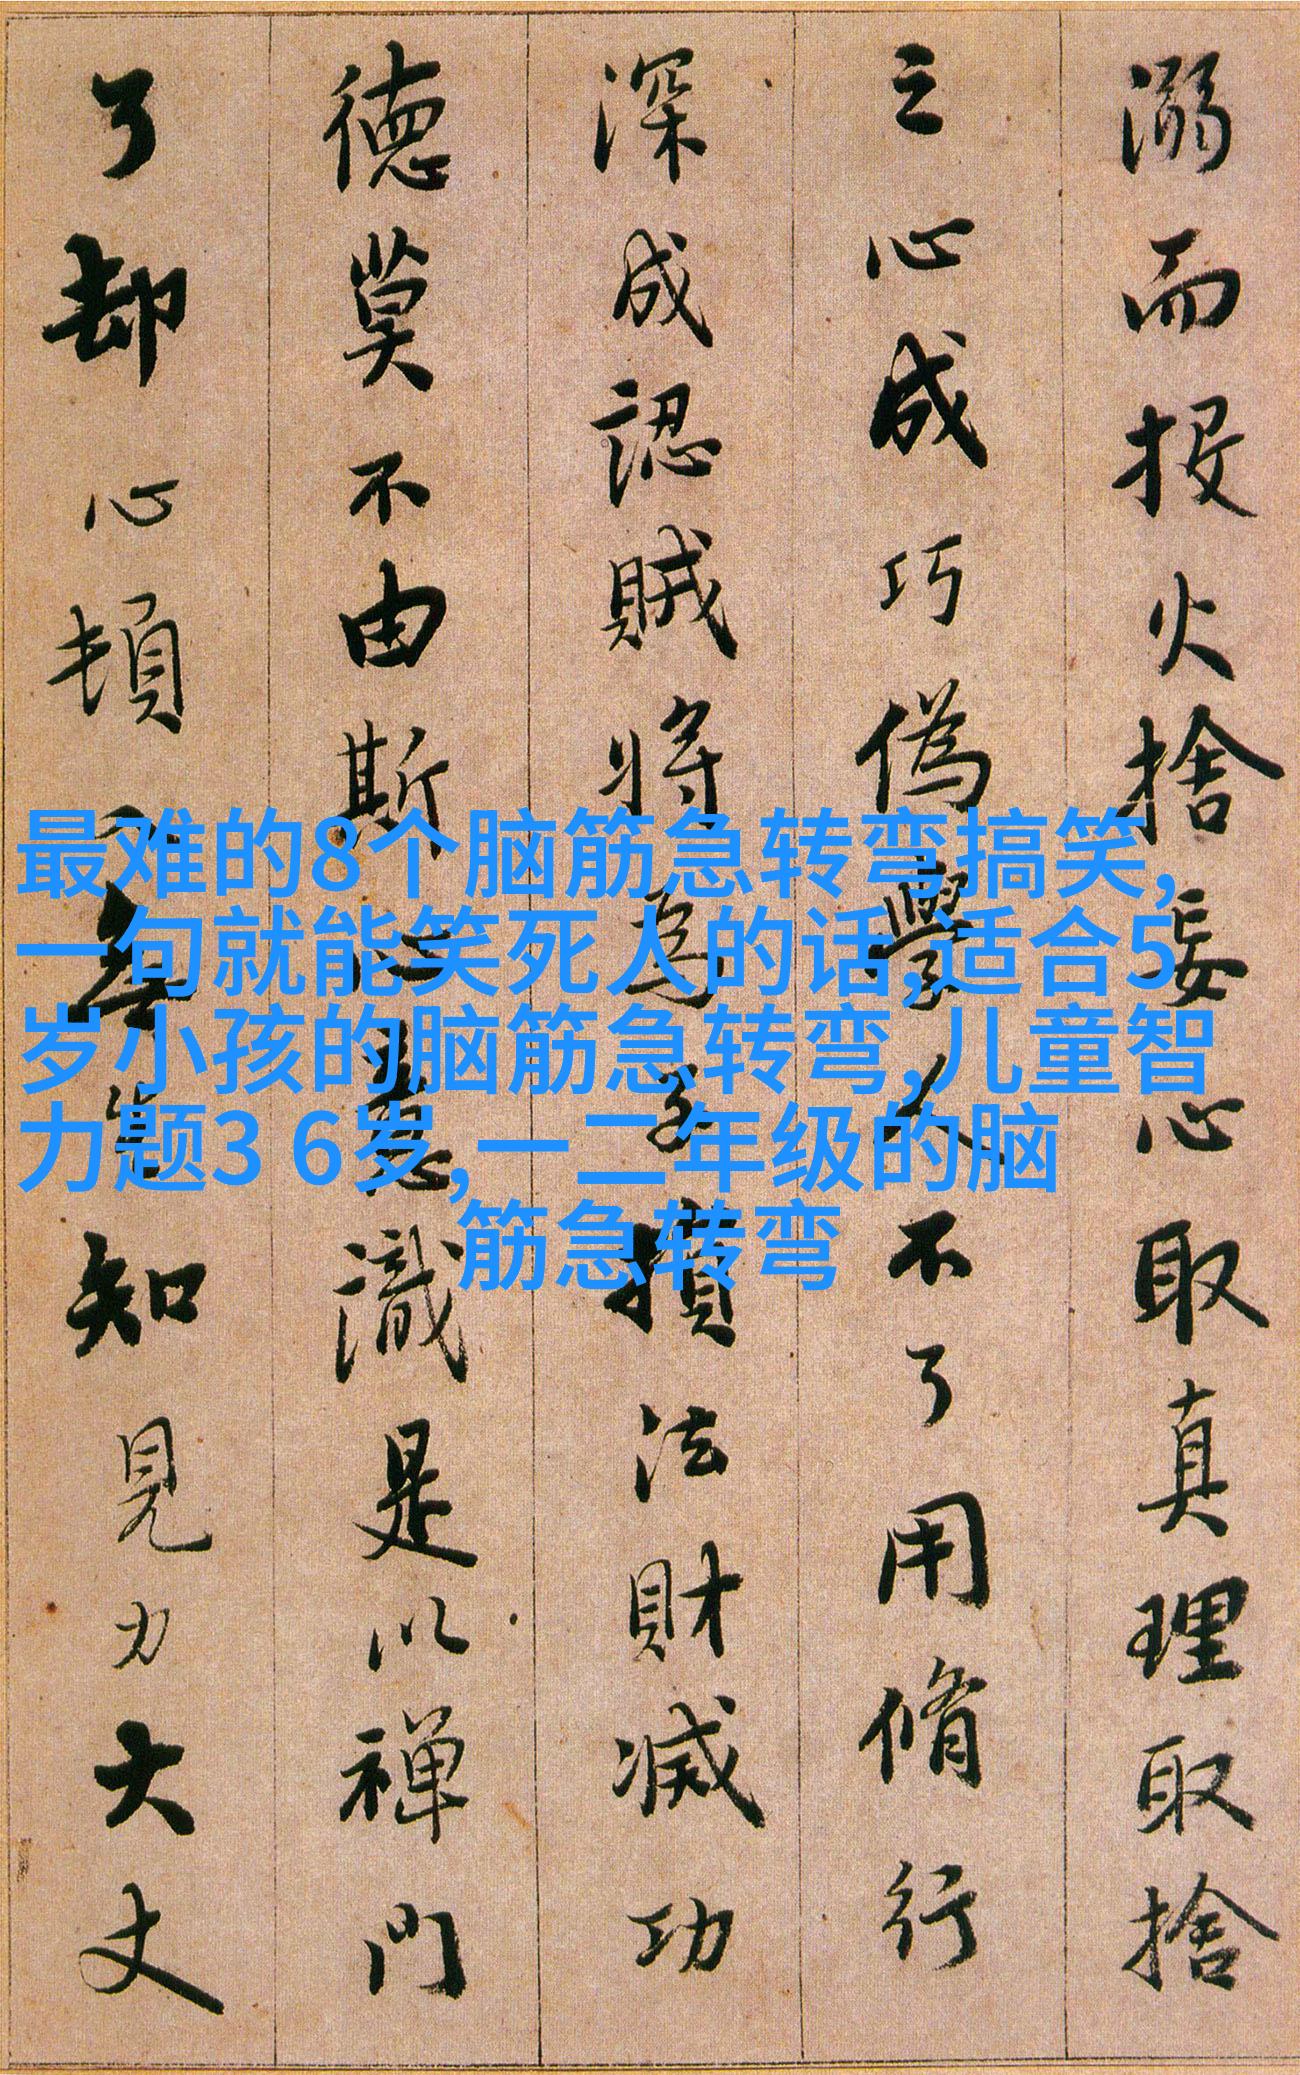 溺而投火捨妄心取真理取捨
之心成巧偽學人不了用脩行
深成認賊將為子損法財滅功
德莫不由斯心意識是以禪門
了却心頓入無生知見力大丈
最难的8个脑筋急转弯搞笑,
一句就能笑死人的话,适合5
岁小孩的脑筋急转弯,儿童智
力题3 6岁,一二年级的脑
筋急转弯